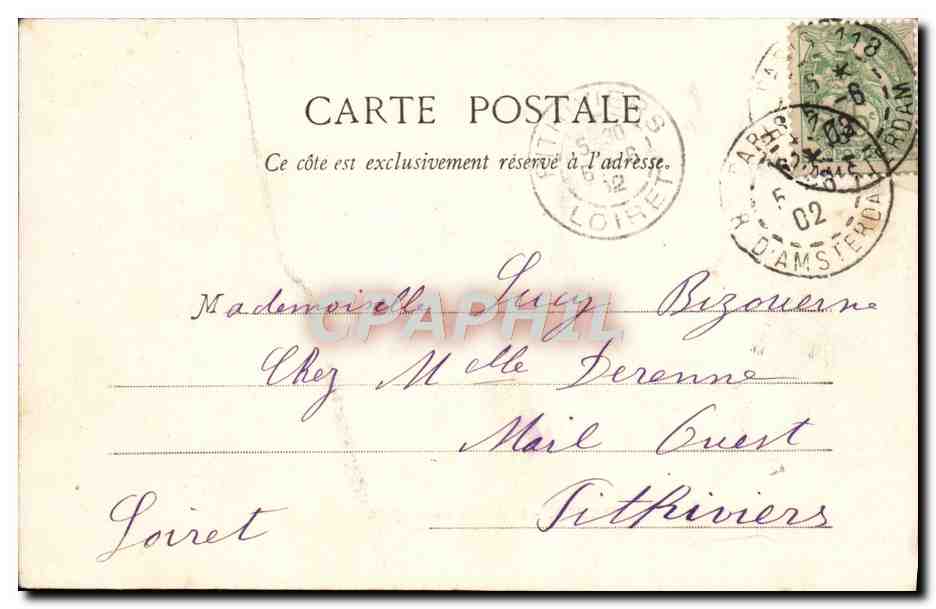 CARTE POSTALE
Ce côte est exclusivement réservé à l'adresse.
PITHIVIERS
LOIRET
PARIS 118
PARIS
R. D'AMSTERDAM
02
Mademoiselle Lucy Bizouerne
Chez Melle Derenne
Mail Ouest
Pithiviers
Loiret
CPAPHIL